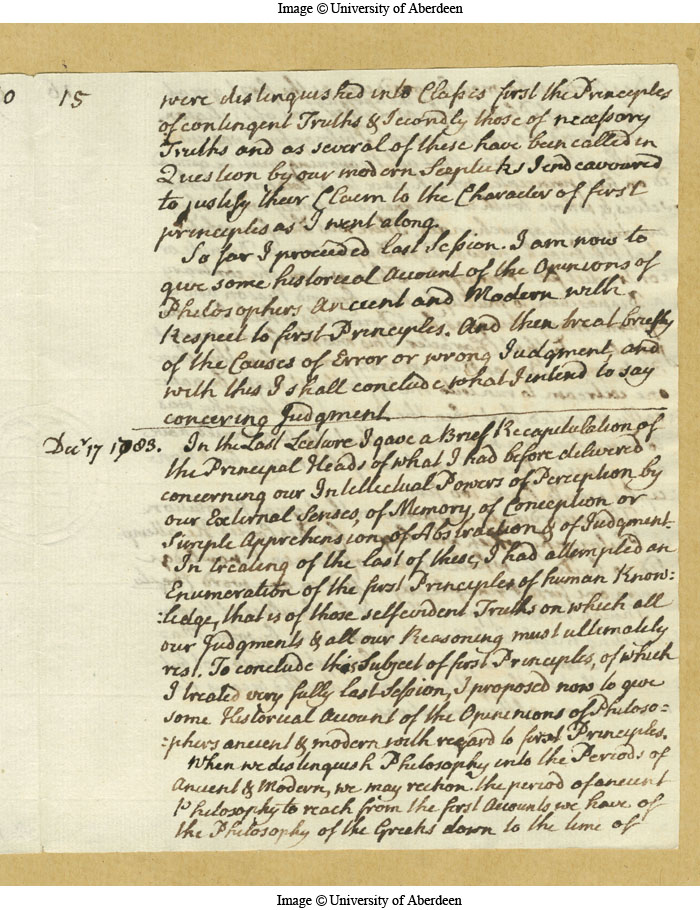 Image © University of Aberdeen
0 15
were distinguished into Classes first the Principles
of contingent Truths & Secondly those of necessary
Truths and as several of these have been called in
Question by our modern Scepticks I endeavoured
to justify their Claim to the Character of first
principles as I went along.
So far I proceeded last Session. I am now to
give some historical Account of the Opinions of
Philosophers Ancient and Modern with
Respect to first Principles. And then treat briefly
of the Causes of Error or wrong Judgment, and
with this I shall conclude what I intend to say
concering Judgment.
Decr 17 1783. In the Last Lecture I gave a Brief Recapitulation of
the Principal Heads of what I had before delivered
concerning our Intellectual Powers of Perception by
our External Senses, of Memory, of Conception or
Simple Apprehension of Abstraction & of Judgment.
In treating of the last of these, I had attempted an
Enumeration of the first Principles of human Know=
=ledge, that is of those selfevident Truths on which all
our Judgments & all our Reasoning must ultimately
rest. To conclude this Subject of first Principles, of which
I treated very fully last Session, I proposed now to give
some Historical Account of the Opininions of Philoso=
=phers ancient & modern with regard to first Principles.
When we distinguish Philosophy into the Periods of
Ancient & Modern, we may reckon the period of ancient
Philosophy to reach from the first Accounts we have of
the Philosophy of the Greeks down to the time of
Image © University of Aberdeen